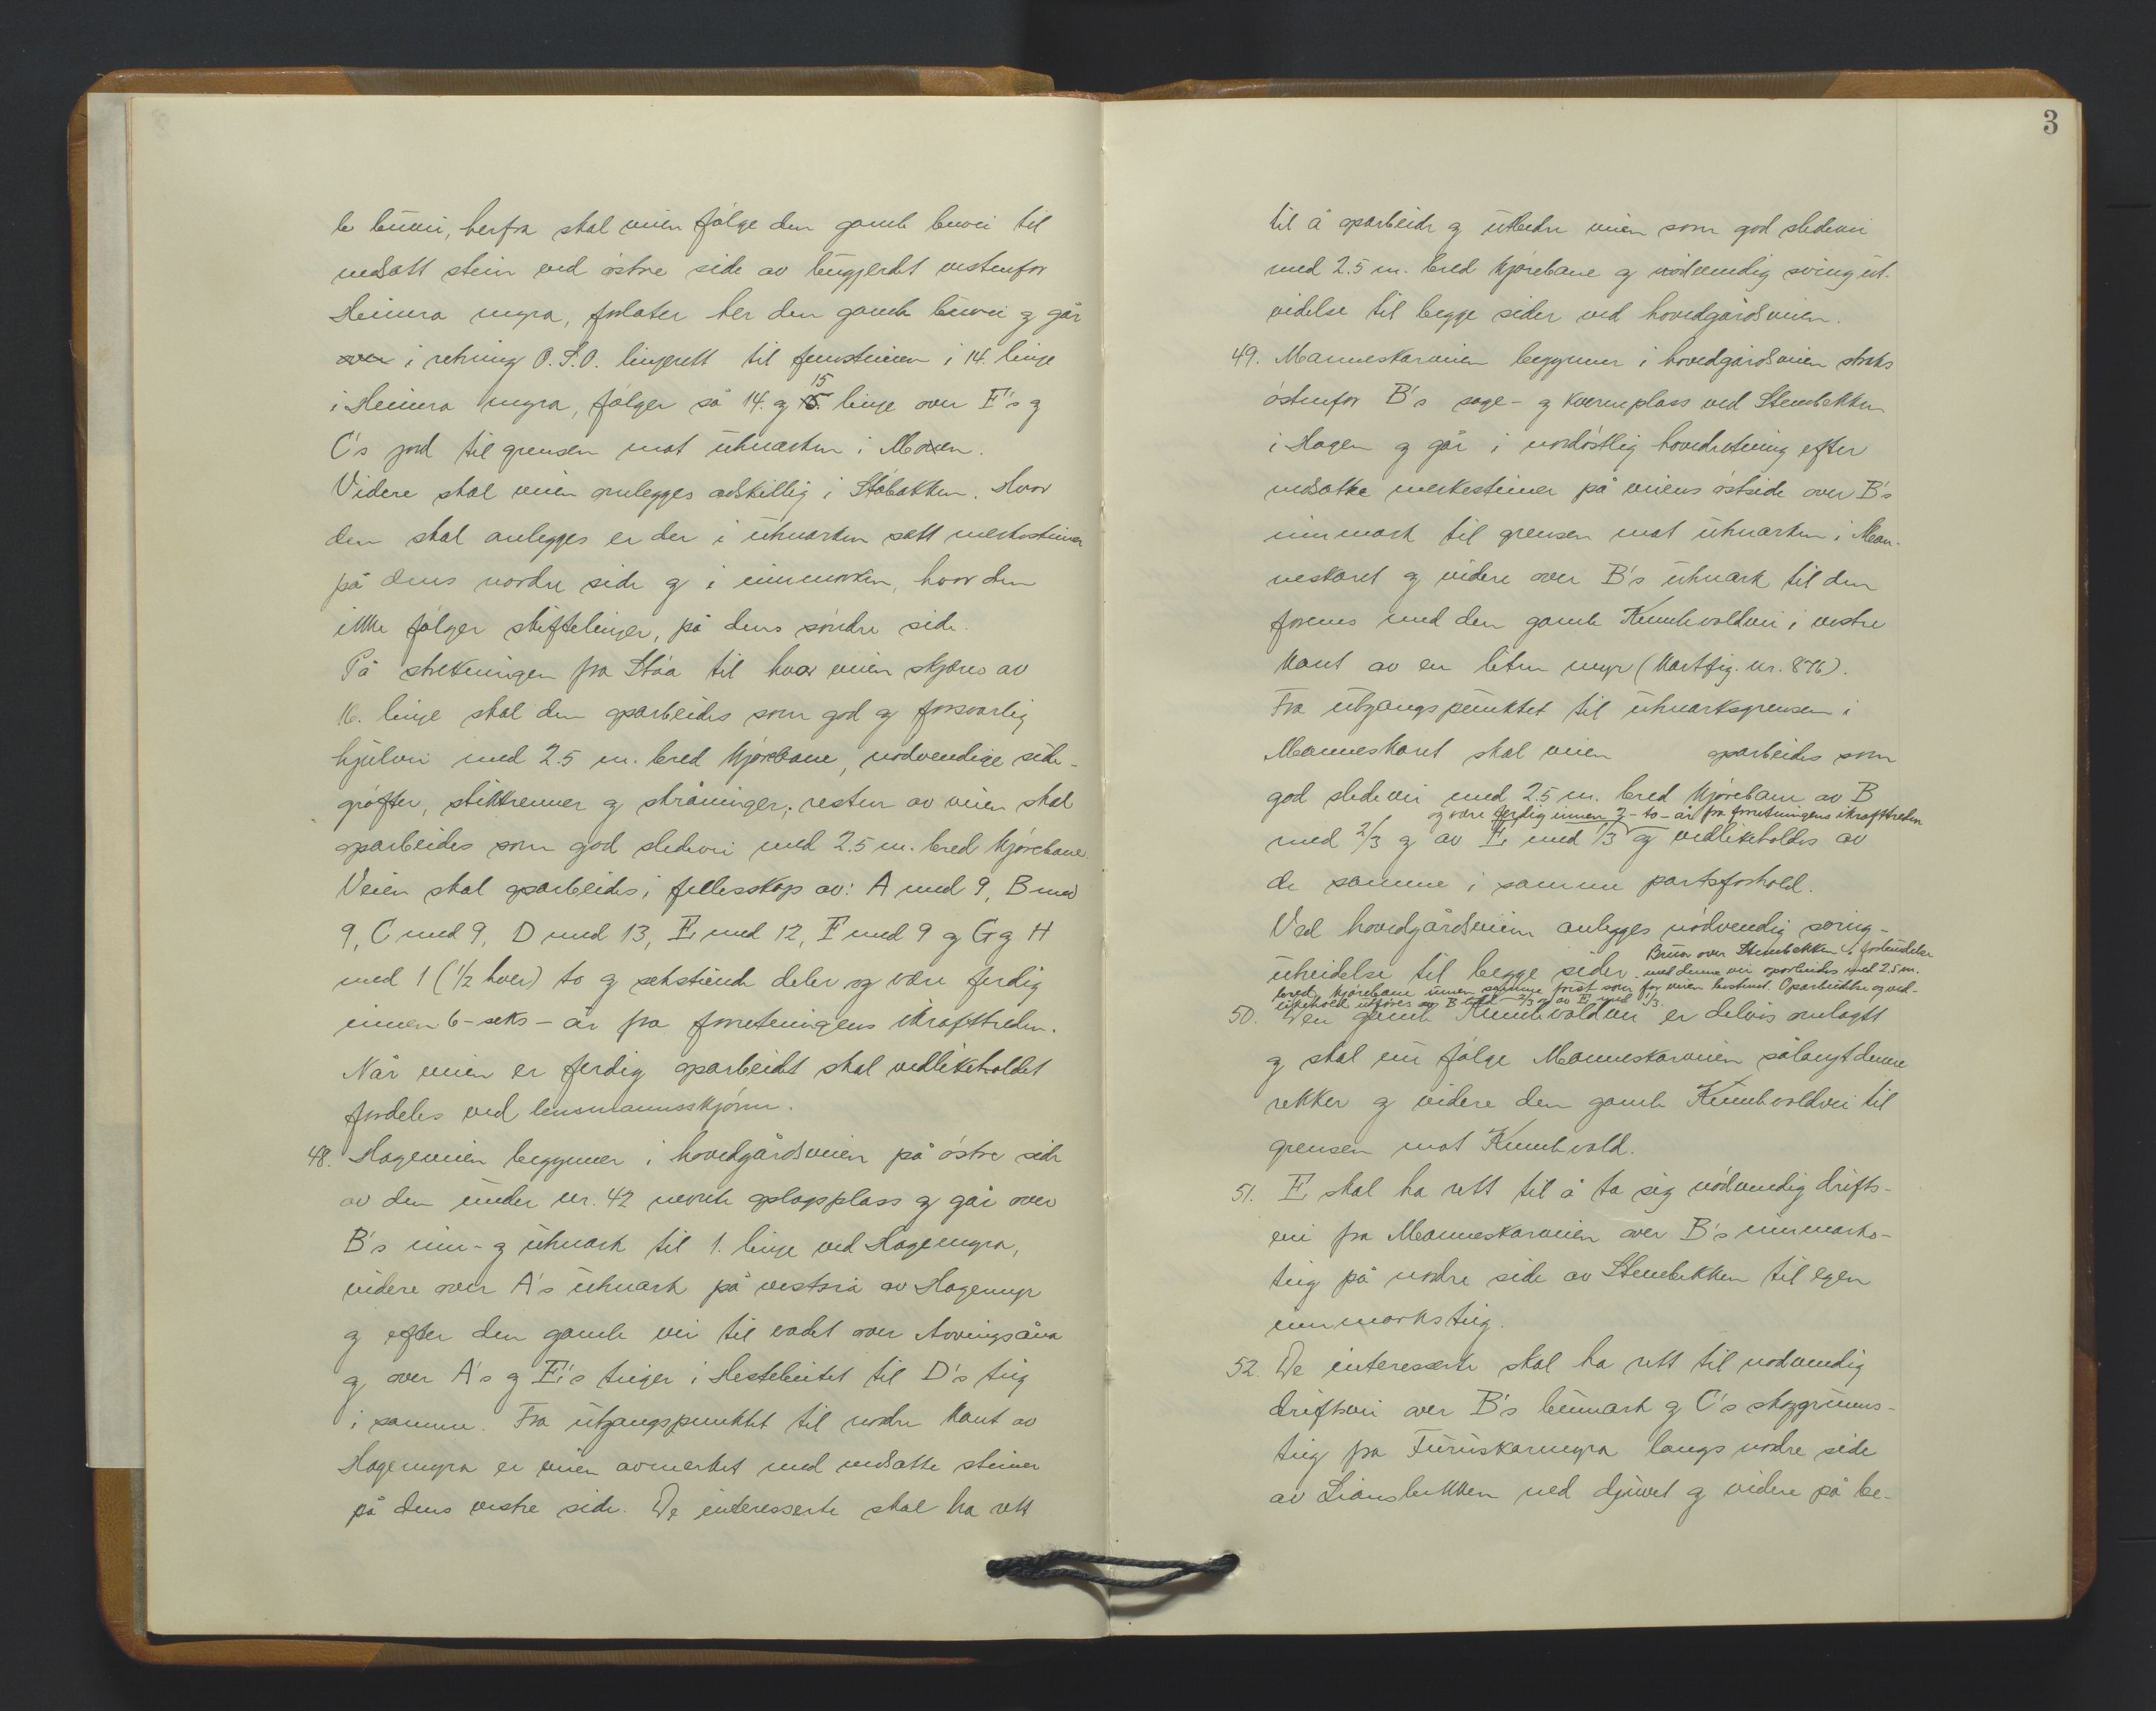 le buvei, herfra skal veien følge den gamle buvei til
nedsatt stein ved østre side av bugjerdet vestenfor
Heimra myra, forlater her den gamle buvei og går
over i retning O.S.O. linjerett til femsteinen i 14. linje
i Heimra myra, følger så 14. og 15. 15 linje over F's og
C's jord til grensen mot utmarken i Moen.
Videre skal veien omlegges adskillig i Støbakken. Hvor
den skal anlegges er der i utmarken satt merkesteiner
på dens nordre side og i innmarken, hvor den
ikke følger skiftelinjer, på dens søndre side.
På strekningen fra Støa til hvor veien skjæres av
16. linje skal den oparbeides som god og forsvarlig
hjulvei med 2.5 m. bred kjørebane, nødvendige side-
grøfter, stikkrenner og skråninger; resten av veien skal
oparbeides som god sledevei med 2.5 m. bred kjørebane.
Veien skal oparbeides i fellesskap av: A med 9, B med
9, C med 9, D med 13, E med 12, F med 9 og G og H
med 1 (1/2 hver) to og sekstiende deler og være ferdig
innen 6 - seks - år fra forretningens ikrafttreden.
Når veien er ferdig oparbeidt skal vedlikeholdet
fordeles ved lensmannsskjønn.
48. Hageveien begynner i hovedgårdsveien på østre side
av den under nr. 42 nevnte oplagsplass og går over
B's inn- og utmark til 1. linje ved Hagemyra,
videre over A's utmark på vestsia av Hagemyr
og efter den gamle vei til vadet over Avvingsåna
og over A's og E's teiger i Hestebeitet til D's teig
i samme. Fra utgangspunktet til nordre kant av
Hagemyra er veien avmerket med nedsatte steiner
på dens vestre side. De interesserte skal ha rett
3
til å oparbeide og utbedre veien som god sledevei
med 2.5 m. bred kjørebane og nødvendig svingut-
videlse til begge sider ved hovedgårdsveien.
49. Manneskarveien begynner i hovedgårdsveien straks
østenfor B's sage- og kvernplass ved Stembekken
i Hagen og går i nordøstlig hovedretning efter
nedsatte merkesteiner på veiens østside over B's
innmark til grensen mot utmarken i Man-
neskaret og videre over B's utmark til den
forenes med den gamle Kumlevoldvei i vestre
kant av en liten myr (Kartfig. nr. 876).
Fra utgangspunktet til utmarksgrensen i
Manneskaret skal veien oparbeides som
god sledevei med 2.5 m. bred kjørebane av B
og være ferdig innen 2 - to - år fra forretningens ikrafttreden
med 2/3 og av E med 1/3 og vedlikeholdes av
de samme i samme partsforhold.
Ved hovedgårdsveien anlegges nødvendig sving-
utvidelse til begge sider. Brua over Stembekken i forbindelse
med denne vei oparbeides med 2.5 m.
bred kjørebane innen samme frist som for veien bestemt. Oparbeidelse og ved-
likehold utføres av B med 2/3 og av E med 1/3.
50. Den gamle Kumlevoldvei er delvis omlagt
og skal nu følge Manneskarveien sålangt denne
rekker og videre den gamle Kumlevoldvei til
grensen mot Kumlevold.
51. E skal ha rett til å ta sig nødvendig drifts-
vei fra Manneskarveien over B's innmarks-
teig på nordre side av Stembekken til egen
innmarksteig.
52. De interesserte skal ha rett til nødvendig
driftsvei over B's heimark og C's skoggrunns-
teig fra Furuskarmyra langs nordre side
av Liansbekken ned djuvet og videre på be-